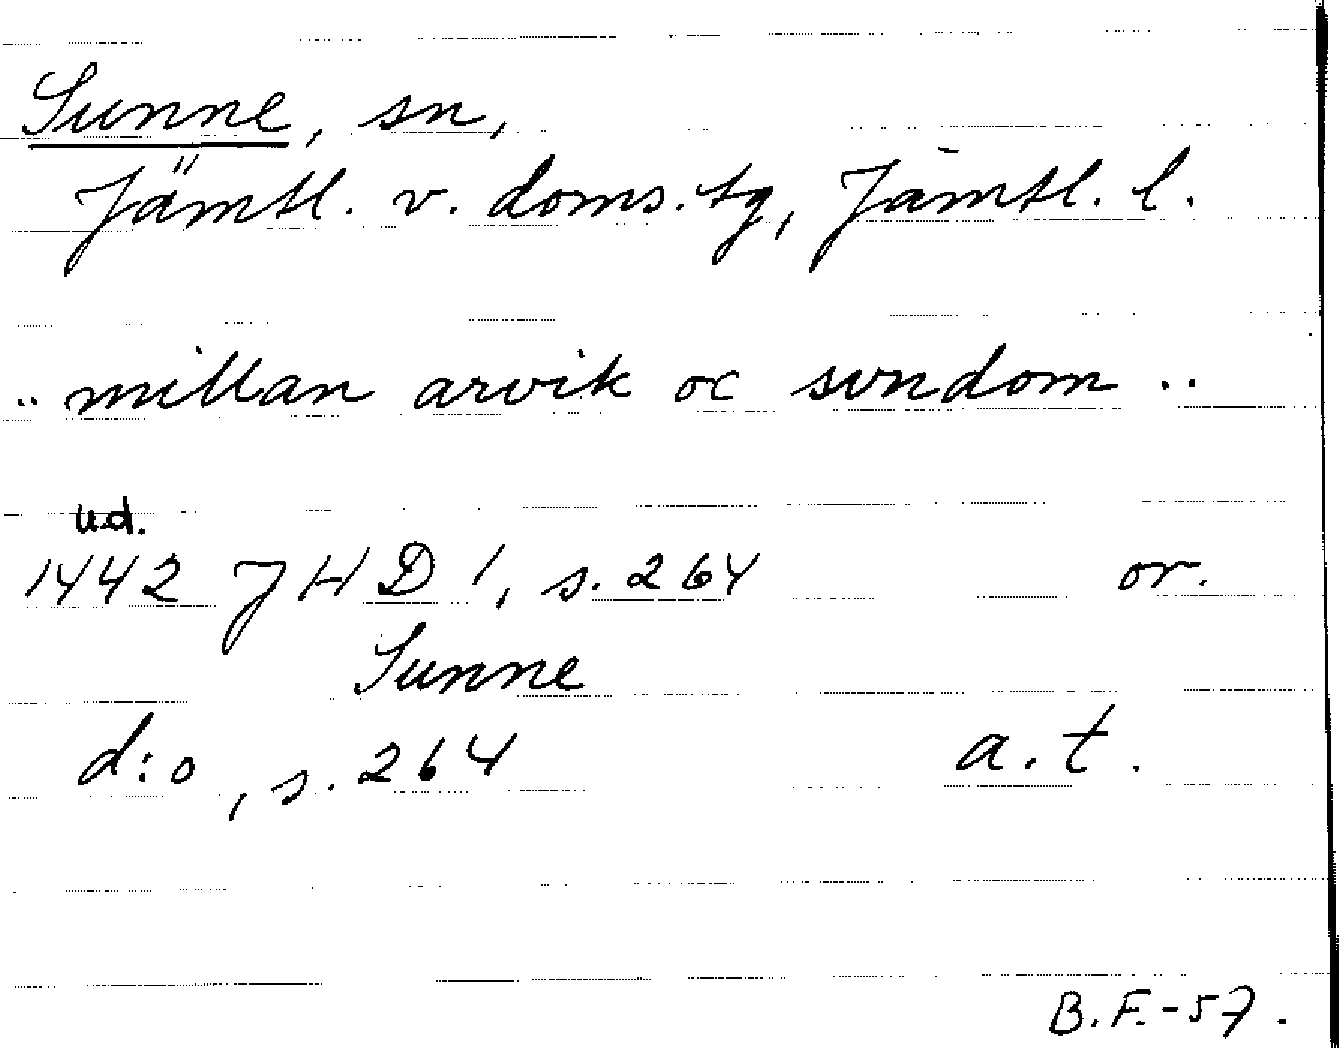 Sunne, sn,
Jämtl. v. doms. tg, Jämtl. l.
.. millan arvik oc svndom ..
u.d.
1442 JHD 1, s. 264 or.
Sunne
d:o, s. 264 a.t.
B.F.-57.